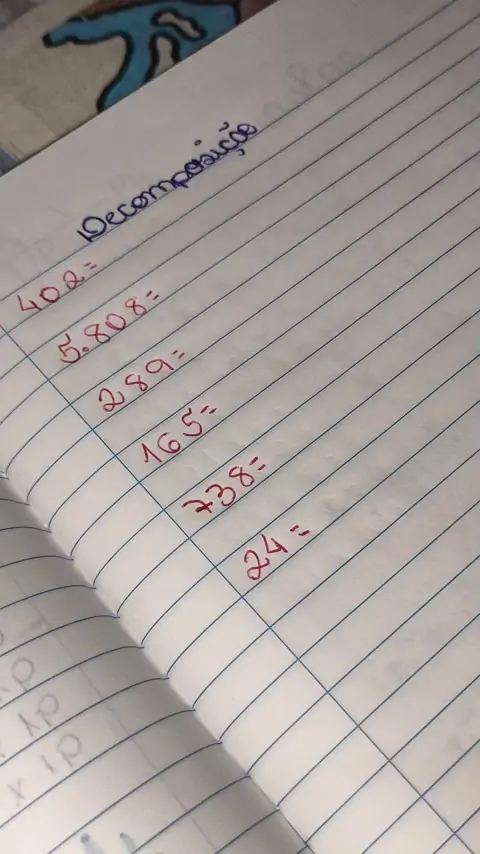 Decomposição
402=
5.808=
289=
165=
738=
24=